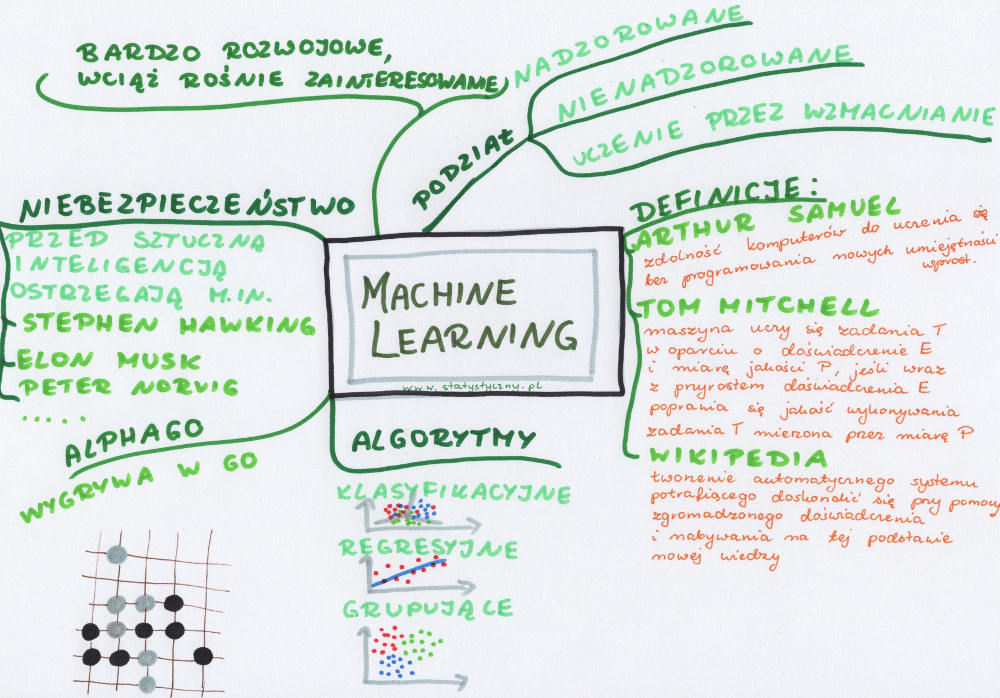 BARDZO ROZWOJOWE,
WCIĄŻ ROŚNIE ZAINTERESOWANIE
PODZIAŁ
NADZOROWANE
NIENADZOROWANE
UCZENIE PRZEZ WZMACNIANIE
NIEBEZPIECZEŃSTWO
PRZED SZTUCZNĄ
INTELIGENCJĄ
OSTRZEGAJĄ M.IN.
STEPHEN HAWKING
ELON MUSK
PETER NORVIG
.....
MACHINE
LEARNING
www.statystyczny.pl
DEFINICJE:
ARTHUR SAMUEL
zdolność komputerów do uczenia się
bez programowania nowych umiejętności
wprost.
TOM MITCHELL
maszyna uczy się zadania T
w oparciu o doświadczenie E
i miarę jakości P, jeśli wraz
z przyrostem doświadczenia E
poprawia się jakość wykonywania
zadania T mierzona przez miarę P
WIKIPEDIA
tworzenie automatycznego systemu
potrafiącego doskonalić się przy pomocy
zgromadzonego doświadczenia
i nabywania na tej podstawie
nowej wiedzy
ALPHAGO
WYGRYWA W GO
ALGORYTMY
KLASYFIKACYJNE
REGRESYJNE
GRUPUJĄCE